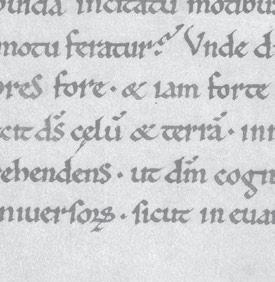 incitatu motibus
motu feratur? Vnde d
pres fore · & iam forte
cit ds̄ cęlū & terrā · inn
ehendens · ut dm̄ cogn
niuersoꝝ · sicut in euan